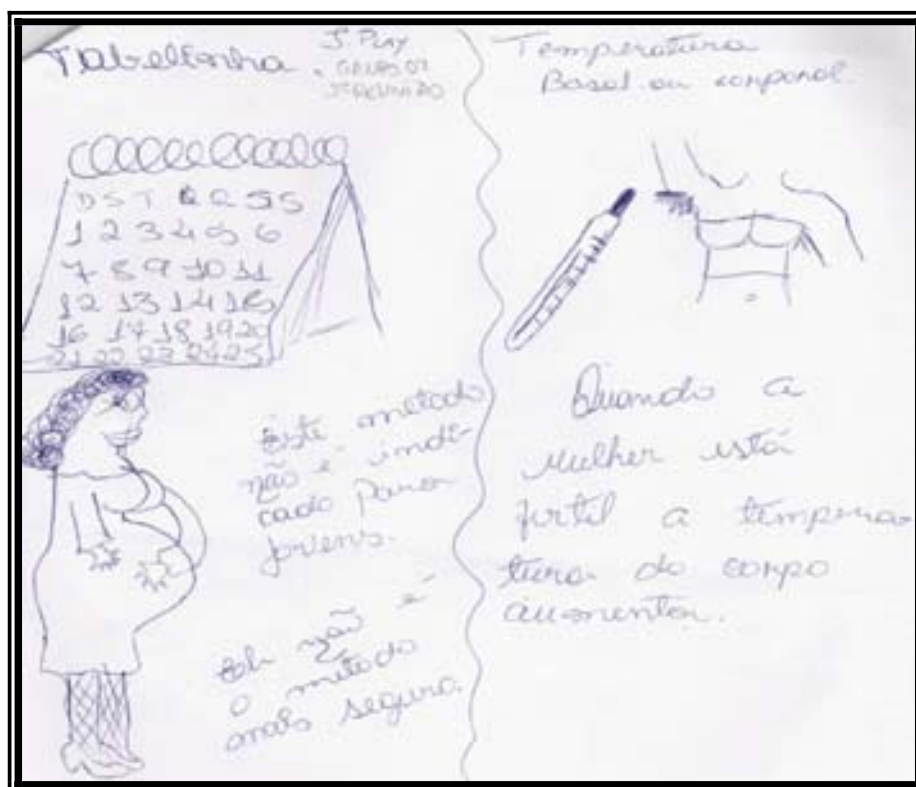 Tabelinha.
J. PLAY
GRUPO 07
3ª REUNIÃO
D S T Q Q S S
1 2 3 4 5 6
7 8 9 10 11
12 13 14 15
16 17 18 19 20
21 22 23 24 25
Este método
não é indi-
cado para
jovens.
Ele não é
o método
mais seguro.
Temperatura
Basal ou corporal
Quando a
mulher está
fértil a tempera
tura do corpo
aumenta.